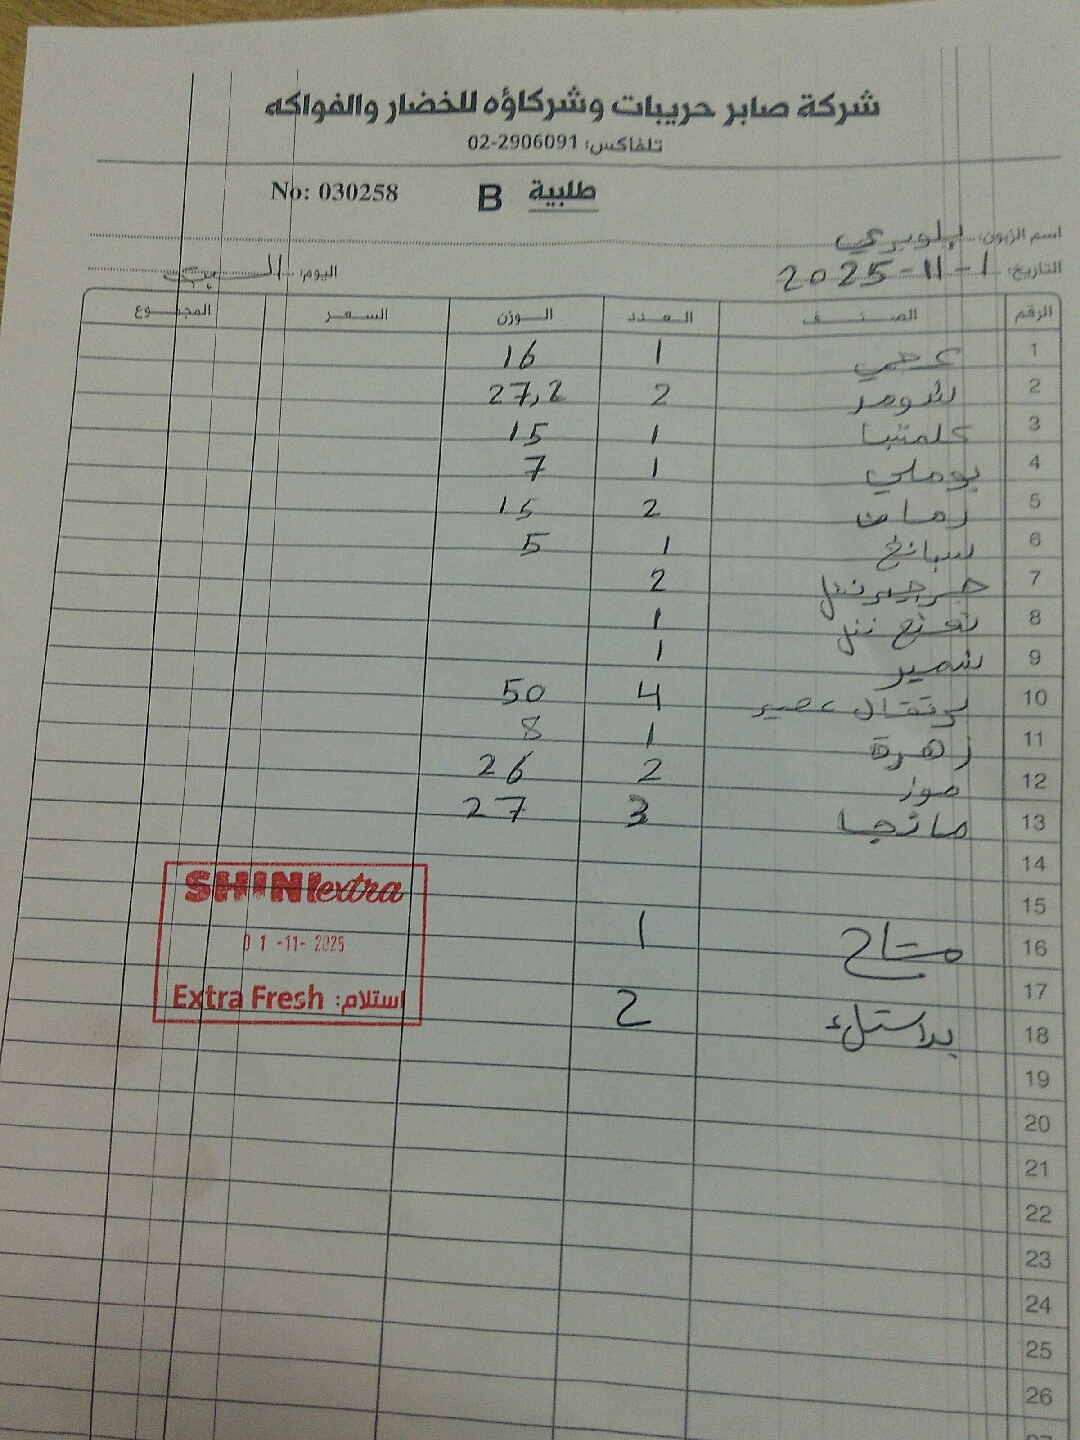 شركة صابر حريبات وشركاؤه للخضار والفواكه
تلفاكس: 02-2906091
طلبية B No: 030258
اسم الزبون: بلوبيري
التاريخ: 1-11-2025 اليوم: السبت
الرقم الصنف العدد الوزن السعر المجموع
1 عجمي 1 16
2 شومر 2 27,2
3 كلمنتينا 1 15
4 بوملي 1 7
5 رمان 2 15
6 سبانخ 1 5
7 جرجير نتل 2
8 نعنع نتل 1
9 شمير 1
10 برتقال عصير 4 50
11 زهرة 1 8
12 موز 2 26
13 مانجا 3 27
14
15
16 مشاح 1
17
18 براستلء 2
19
20
21
22
23
24
25
26
27
SHINI extra
01-11-2025
استلام: Extra Fresh